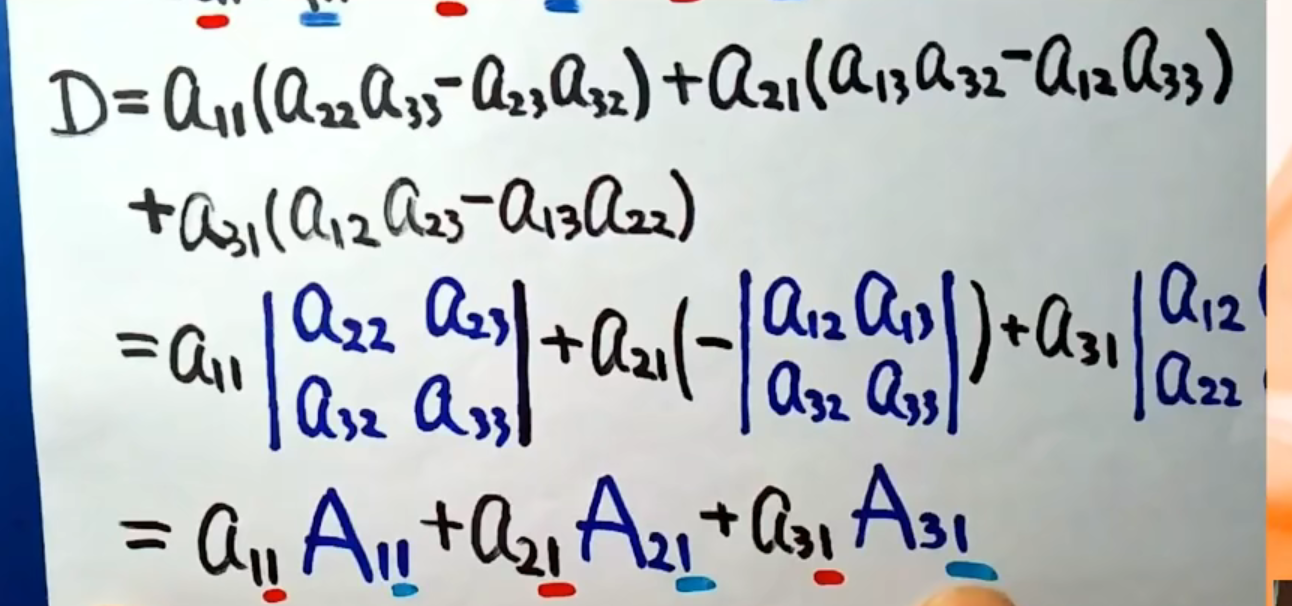 D=a₁₁(a₂₂a₃₃-a₂₃a₃₂)+a₂₁(a₁₃a₃₂-a₁₂a₃₃)
+a₃₁(a₁₂a₂₃-a₁₃a₂₂)
=a₁₁|a₂₂ a₂₃|+a₂₁(-|a₁₂ a₁₃|)+a₃₁|a₁₂
|a₃₂ a₃₃| |a₃₂ a₃₃| |a₂₂
=a₁₁A₁₁+a₂₁A₂₁+a₃₁A₃₁